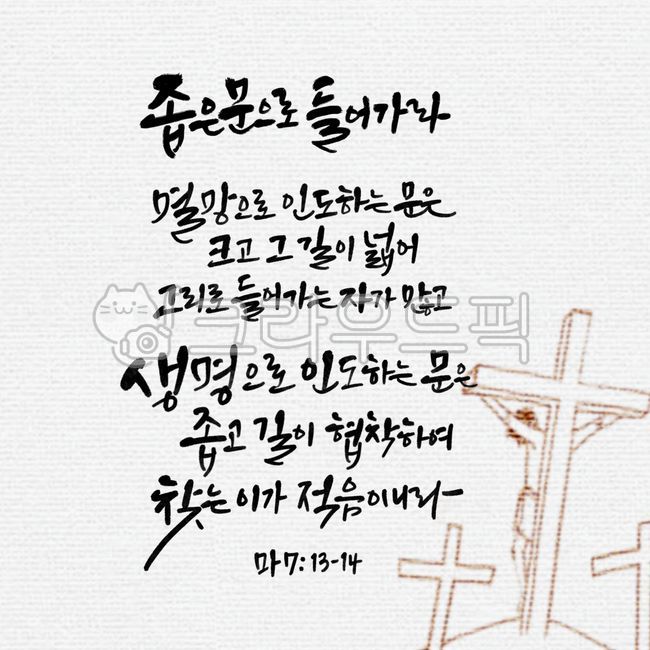 좁은문으로 들어가라
멸망으로 인도하는 문은
크고 그 길이 넓어
그리로 들어가는 자가 많고
크라우드픽
생명으로 인도하는 문은
좁고 길이 협착하여
찾는 이가 적음이니라
마7:13-14